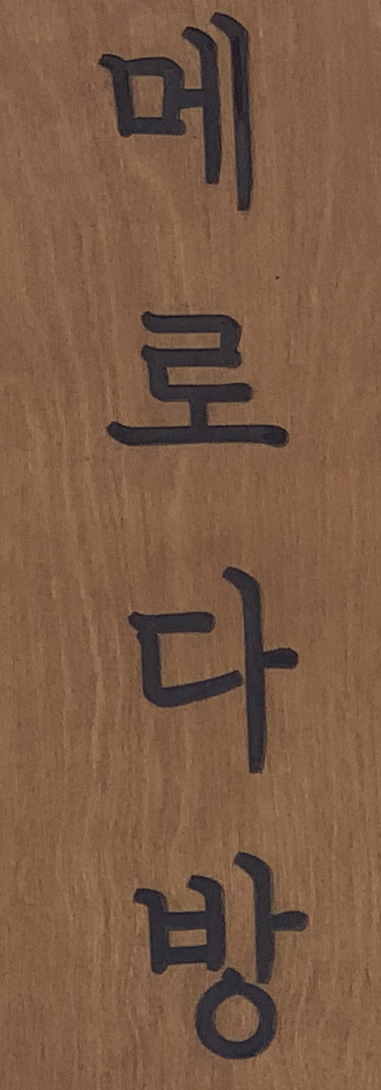 메로다방